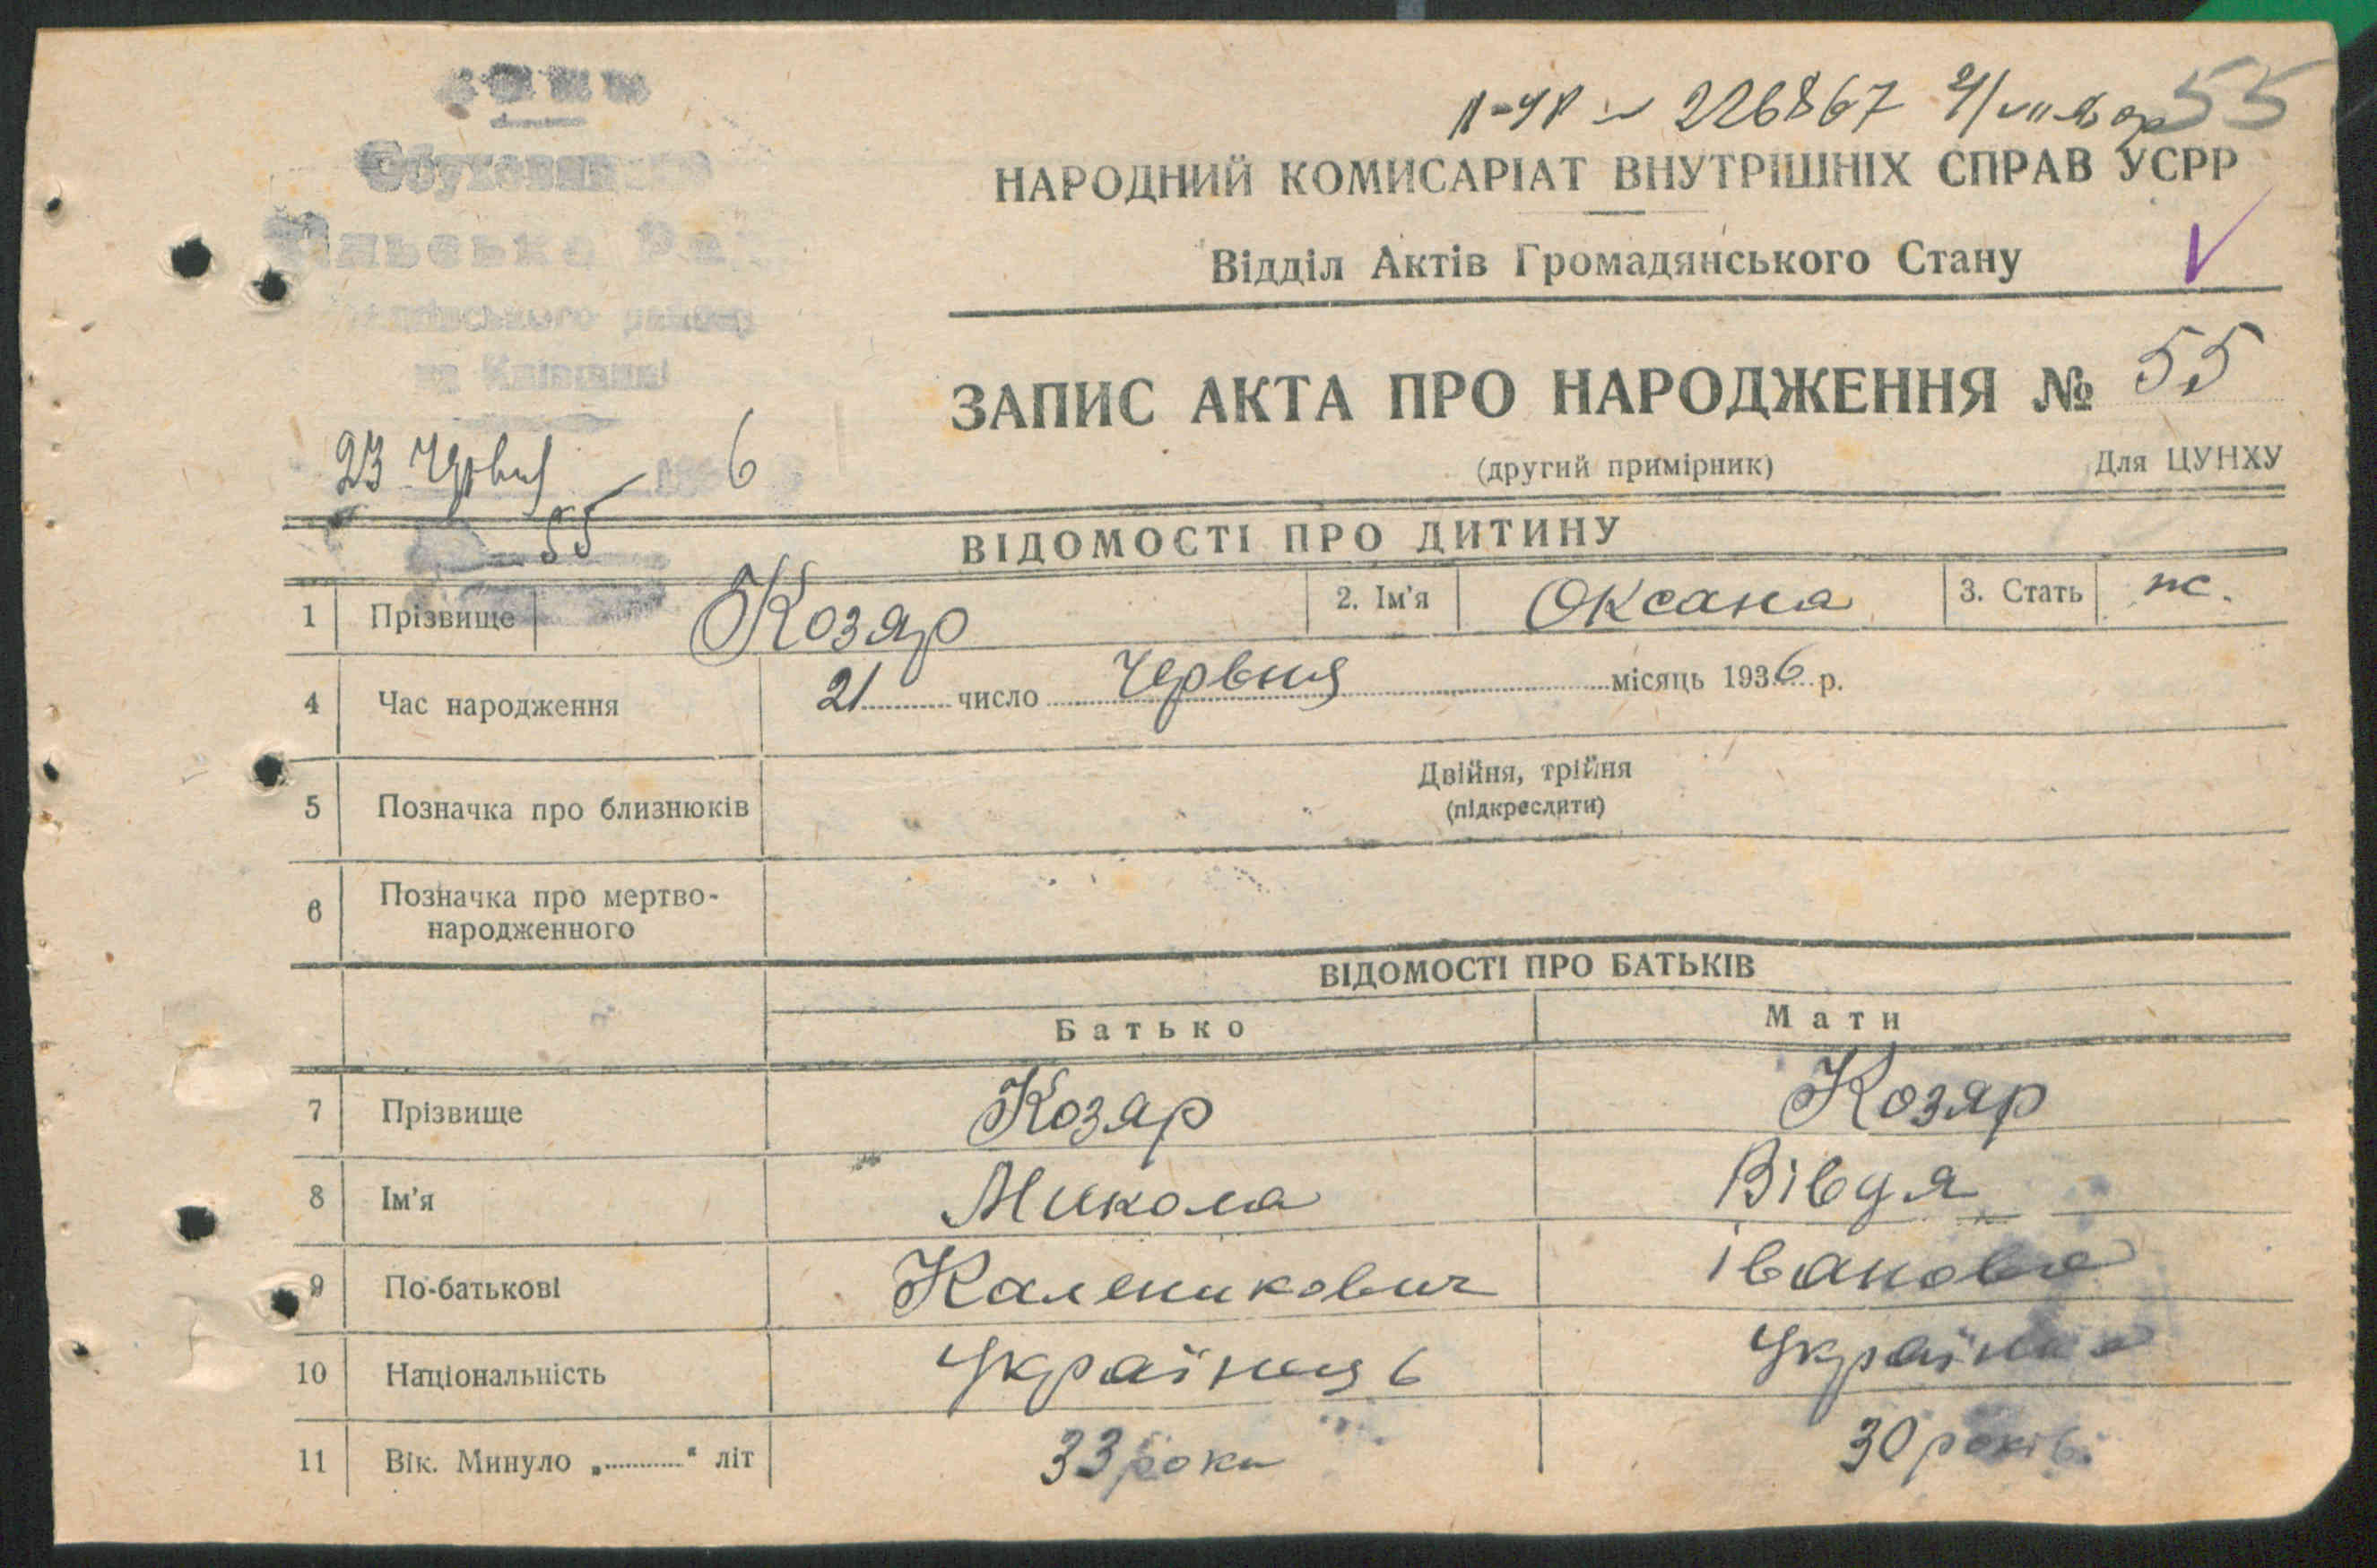 226867
55
НАРОДНИЙ КОМИСАРІАТ ВНУТРІШНІХ СПРАВ УСРР
Відділ Актів Громадянського Стану
ЗАПИС АКТА ПРО НАРОДЖЕННЯ № 55
(другий примірник) Для ЦУНХУ
23 Червня 6
55
ВІДОМОСТІ ПРО ДИТИНУ
1 Прізвище Козяр 2. Ім'я Оксана 3. Стать ж.
4 Час народження 21 число Червня місяць 1936 р.
Двійня, трійня
5 Позначка про близнюків (підкреслити)
6 Позначка про мертво-
народженного
ВІДОМОСТІ ПРО БАТЬКІВ
Батько Мати
7 Прізвище Козяр Козяр
8 Ім'я Микола Вівдя
9 По-батькові Каленикович Івановна
10 Національність Українець Українка
11 Вік. Минуло „............“ літ 33 роки 30 років